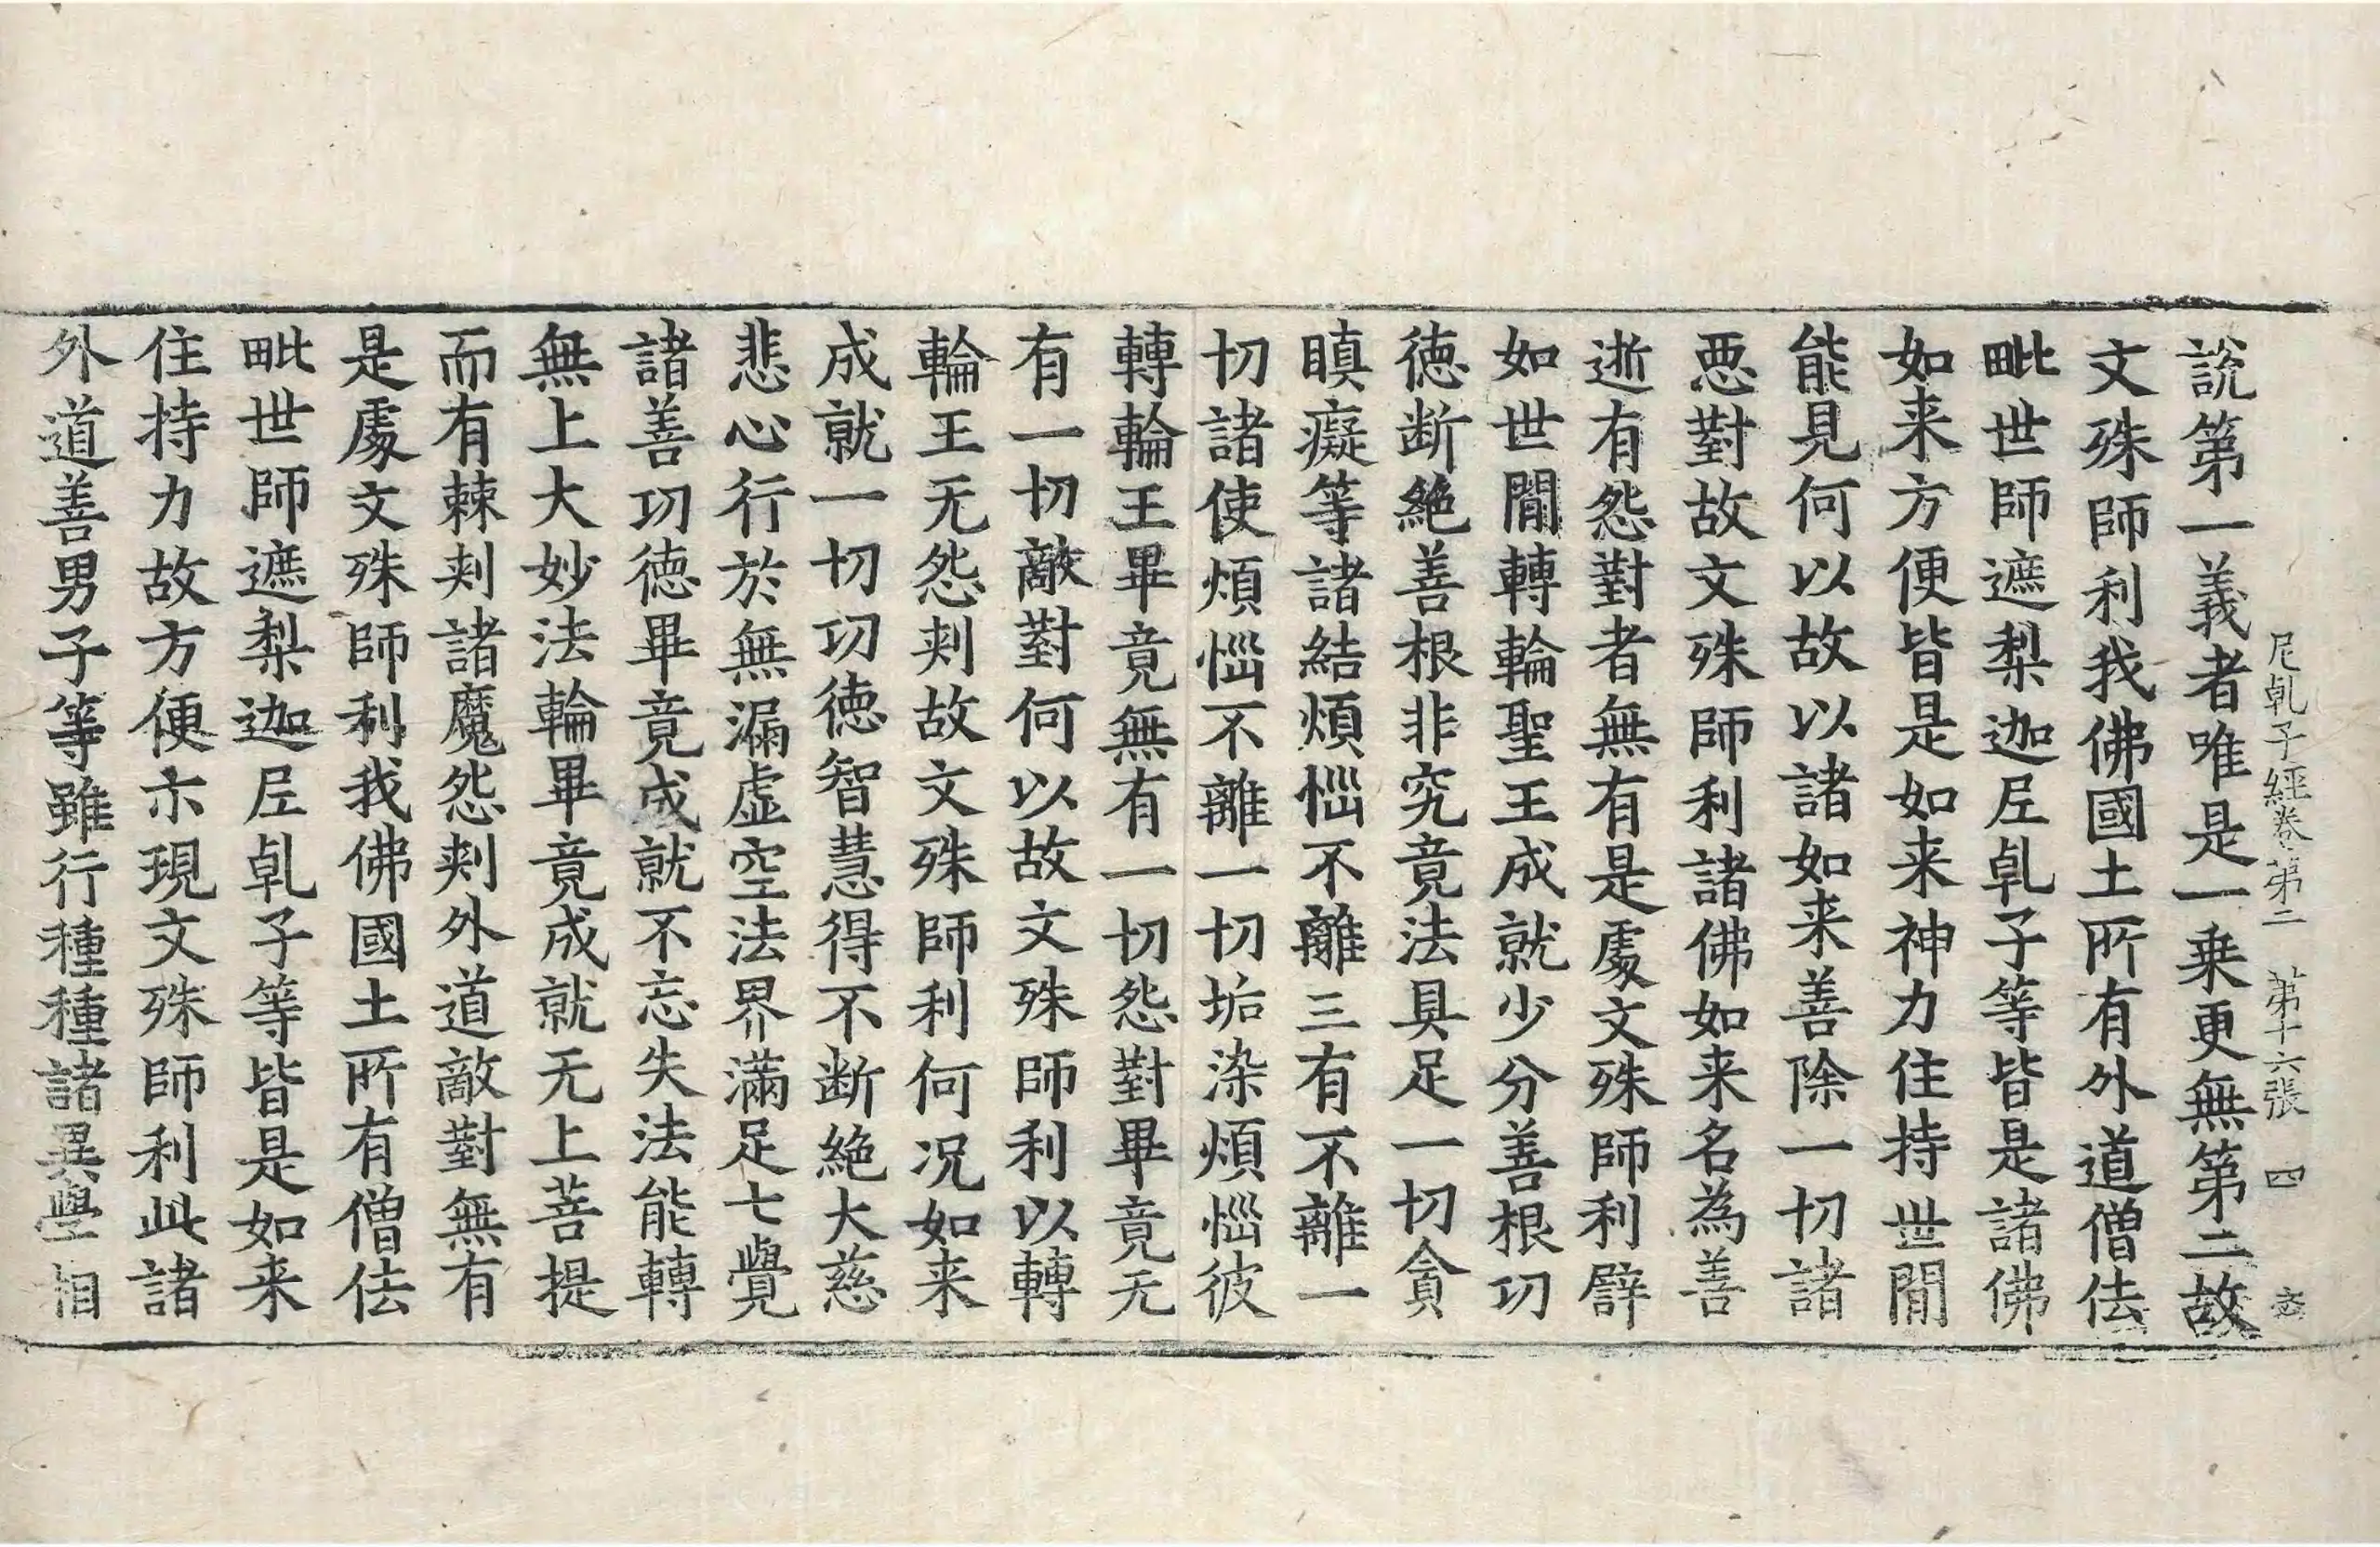 尼乹子經卷第二　第十六張　四
說第一義者唯是一乗更無第二故
文殊師利我佛國土所有外道僧佉
毗世師遮梨迦𡰱乹子等皆是諸佛
如来方便皆是如来神力住持世閒
能見何以故以諸如来善除一切諸
惡對故文殊師利諸佛如来名為善
逝有怨對者無有是處文殊師利譬
如世閒轉輪聖王成就少分善根功
德断絶善根非究竟法具足一切貪
瞋癡等諸結煩惱不離三有不離一
切諸使煩惱不離一切垢染煩惱彼
轉輪王畢竟無有一切怨對畢竟无
有一切敵對何以故文殊師利以轉
輪王无怨刾故文殊師利何况如来
成就一切功德智慧得不断絶大慈
悲心行於無漏虚空法界滿足七覺
諸善功德畢竟成就不忘失法能轉
無上大妙法輪畢竟成就无上菩提
而有棘刾諸魔怨刾外道敵對無有
是處文殊師利我佛國土所有僧佉
毗世師遮梨迦𡰱乹子等皆是如来
住持力故方便亦現文殊師利此諸
外道善男子等雖行種種諸異學相